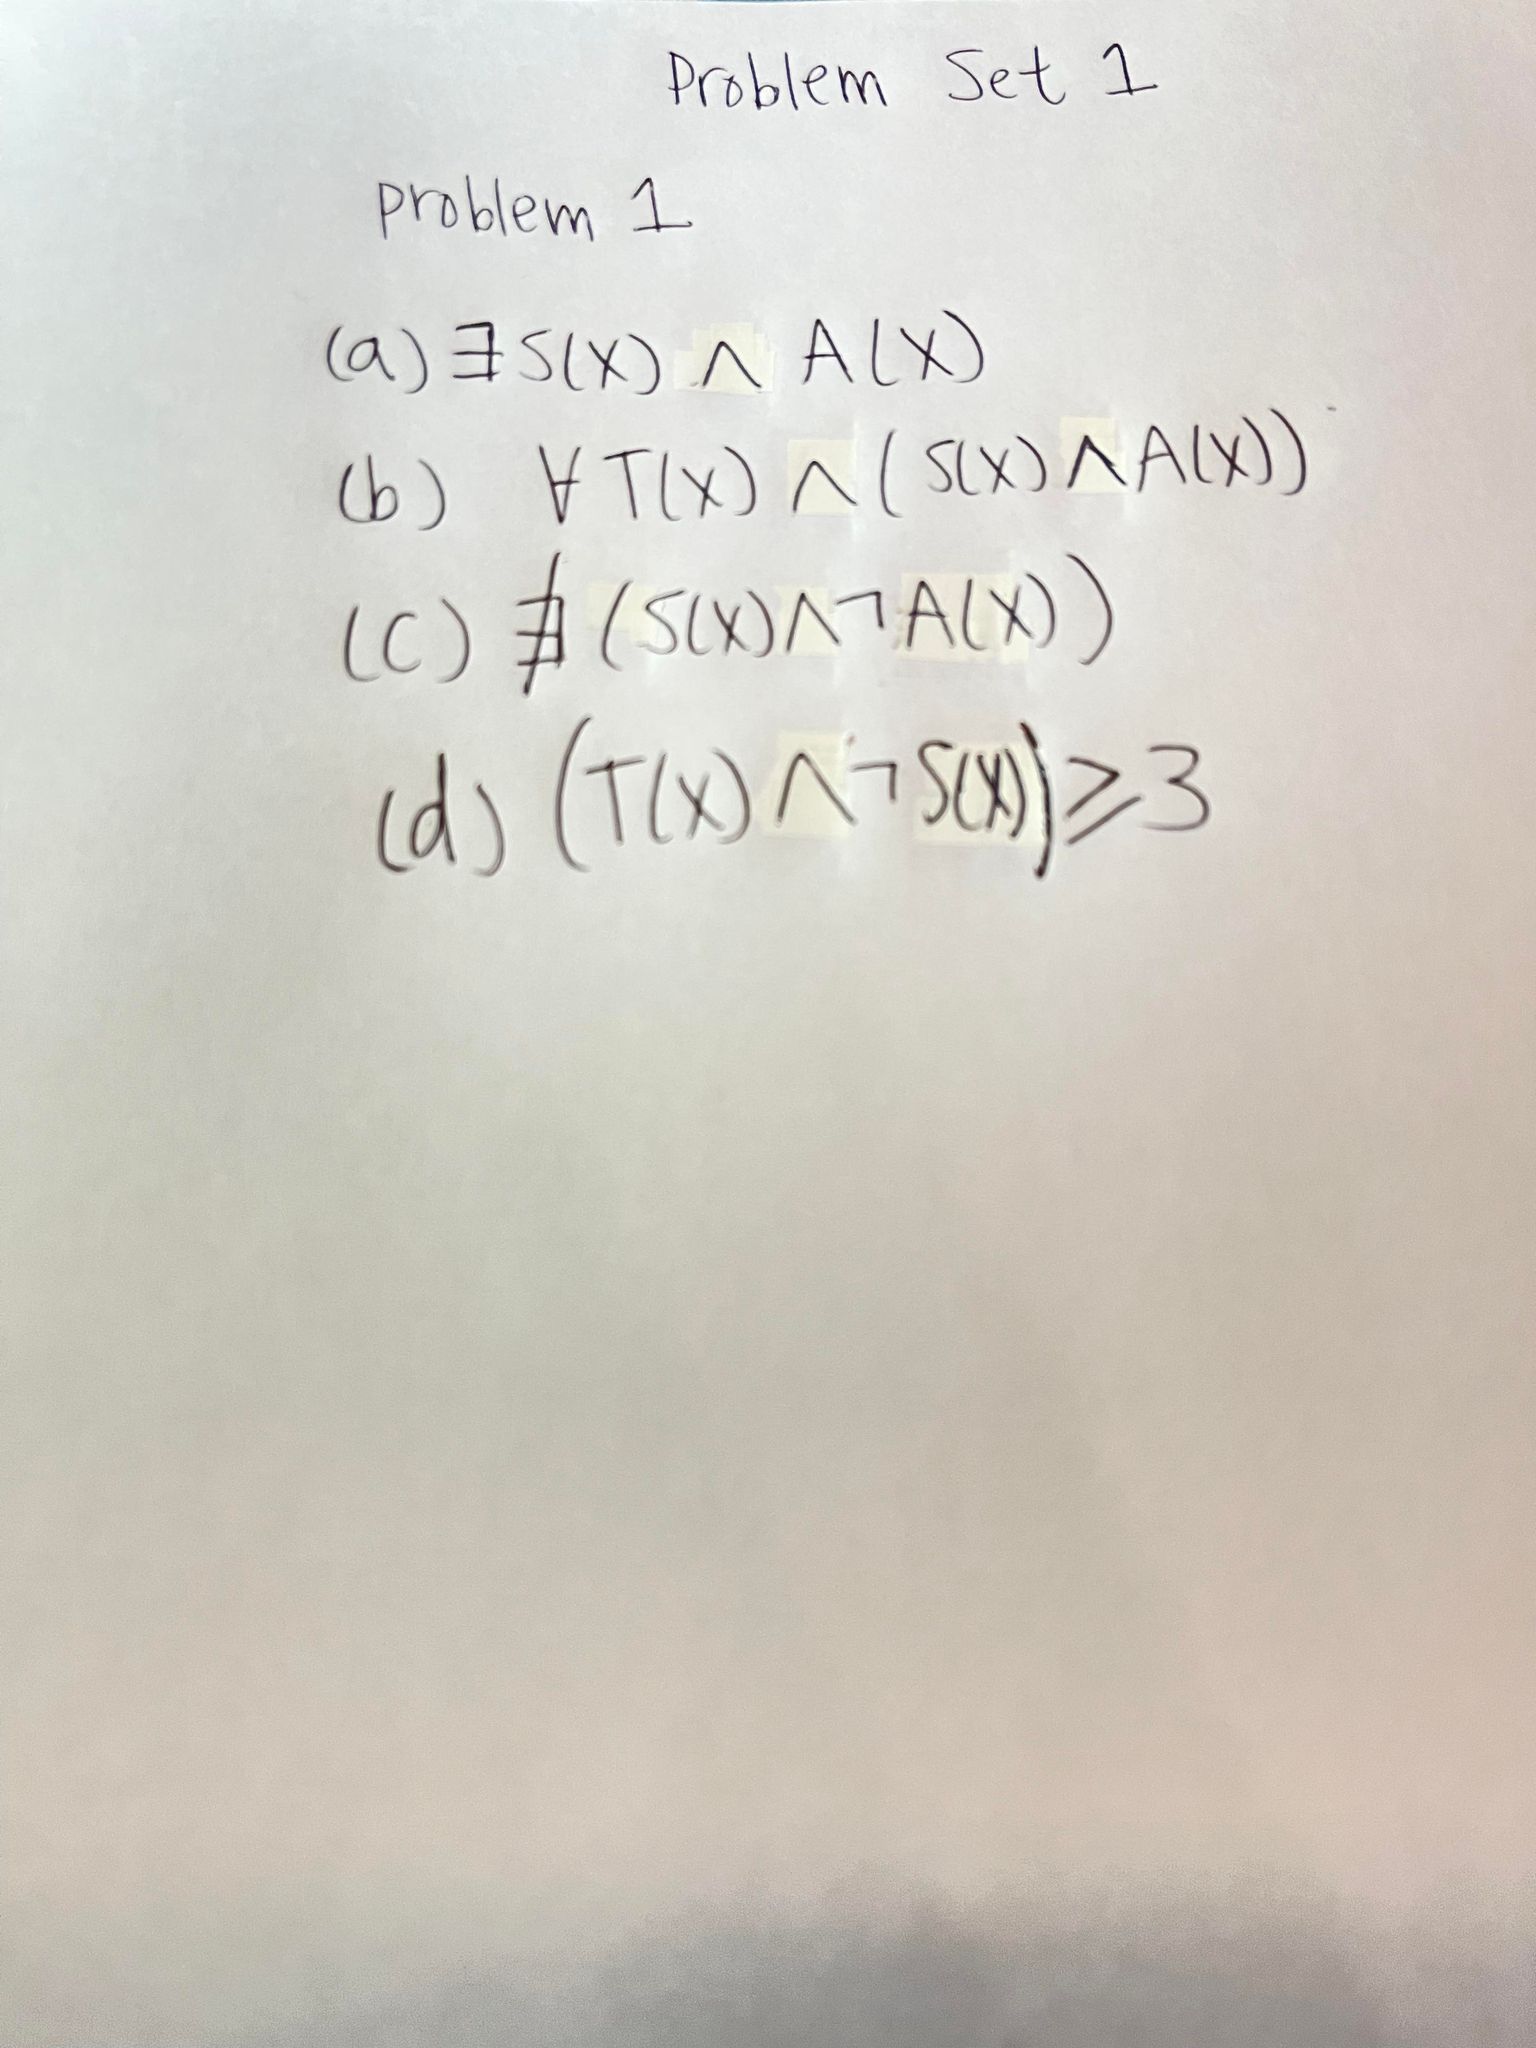 Problem Set 1
problem 1
(a) ∃ S(x) ∧ A(x)
(b) ∀ T(x) ∧ ( S(x) ∧ A(x))
(c) ∄ (S(x) ∧ ¬ A(x))
(d) (T(x) ∧ ¬ S(x)) ⩾ 3